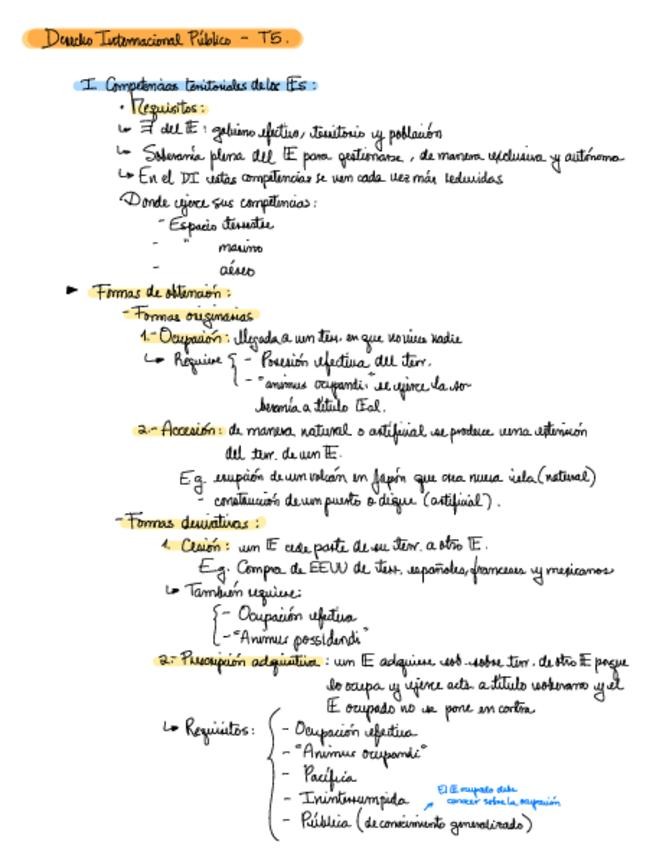 Derecho Internacional Público - T5.
I. Competencias territoriales de los Es:
• Requisitos:
↳ ∃ del E: gobierno efectivo, territorio y población
↳ Soberanía plena del E para gestionarse, de manera exclusiva y autónoma
↳ En el DI estas competencias se ven cada vez más reducidas
Donde ejerce sus competencias:
- Espacio terrestre
- " marino
- aéreo
► Formas de obtención:
- Formas originarias
1.- Ocupación: llegada a un terr. en que no vives nadie
↳ Requiere { - Posesión efectiva del terr.
- "animus ocupandi": se ejerce la so-
beranía a título Eal.
2.- Accesión: de manera natural o artificial se produce una extensión
del terr. de un E.
E.g. erupción de un volcán en Japón que crea nueva isla (natural)
- construcción de un puerto o dique (artificial).
- Formas derivativas:
1. Cesión: un E cede parte de su terr. a otro E.
E.g. Compra de EEUU de terr. españoles, franceses y mexicanos
↳ También requiere:
{ - Ocupación efectiva
- "Animus possidendi"
2.- Prescripción adquisitiva: un E adquiere sob. sobre terr. de otro E porque
lo ocupa y ejerce acts. a título soberano y el
E ocupado no se pone en contra
↳ Requisitos: { - Ocupación efectiva
- "Animus ocupandi"
- Pacífica
- Ininterrumpida
El E ocupado debe
conocer sobre la ocupación
- Pública (de conocimiento generalizado)